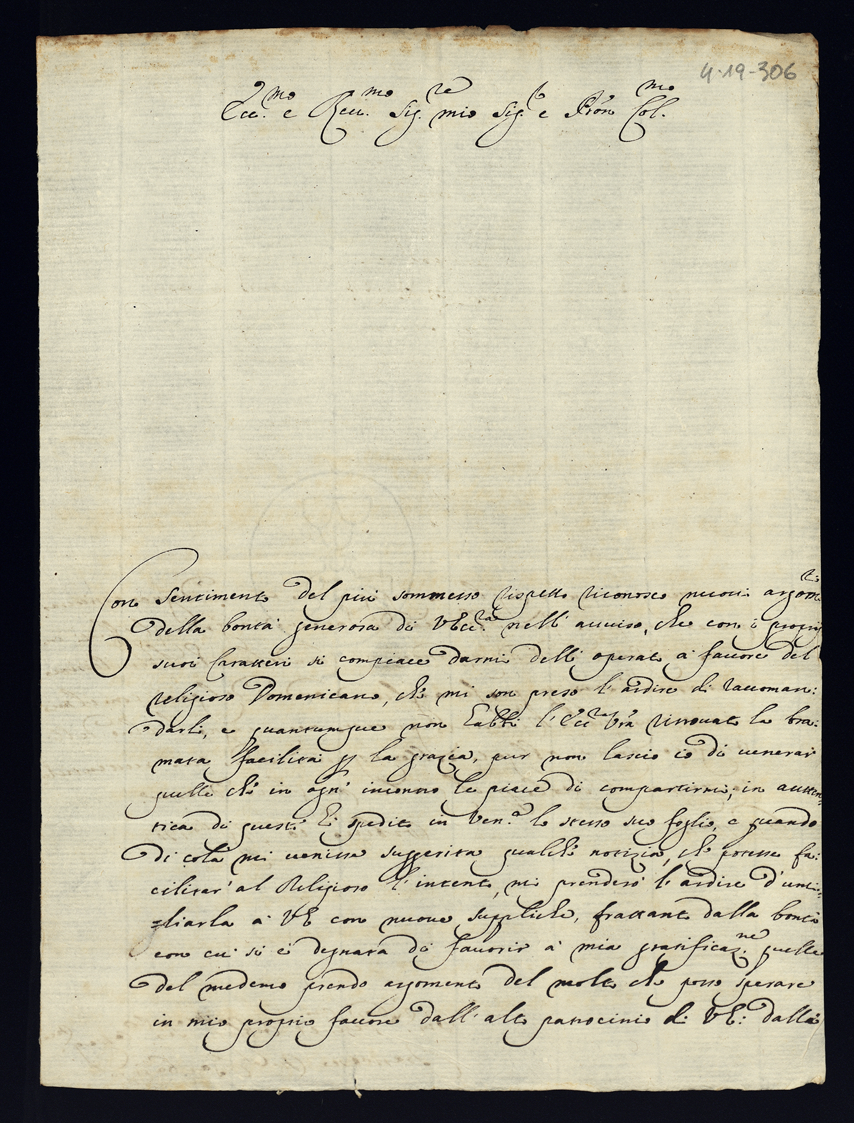 4-19-306
Ecc.mo e Rev.mo Sig.re mio Sig.r e Pron Col.mo
Con sentimento del più sommesso rispetto riconosco nuovi argom.ti
della bontà generosa di VEcc.za nell'avviso, che con i proprij
suoi Caratteri si compiace darmi dell'operato à favore del
religioso Domenicano, che mi son preso l'ardire di raccoman:
darli, e quantunque non habbi l'Ecc.za Vra ritrovato la bra:
mata facilità per la grazia, pur non lascio io di venerar
quelle che in ogn'incontro le piace di compartirmi, in autten:
tica di questi hò spedito in Ven.a lo stesso suo foglio, e quando
di colà mi venisse suggerita qualche notizia, che potesse fa:
cilitar'al Religioso l'intento, mi prenderò l'ardire d'umi:
gliarla à VE con nuove suppliche, frattanto dalla bontà
con cui si è degnata di favorir à mia gratificaz.ne quello
del medemo prendo argomento del molto che posso sperare
in mio proprio favore dall'alto patrocinio di VE: dalla